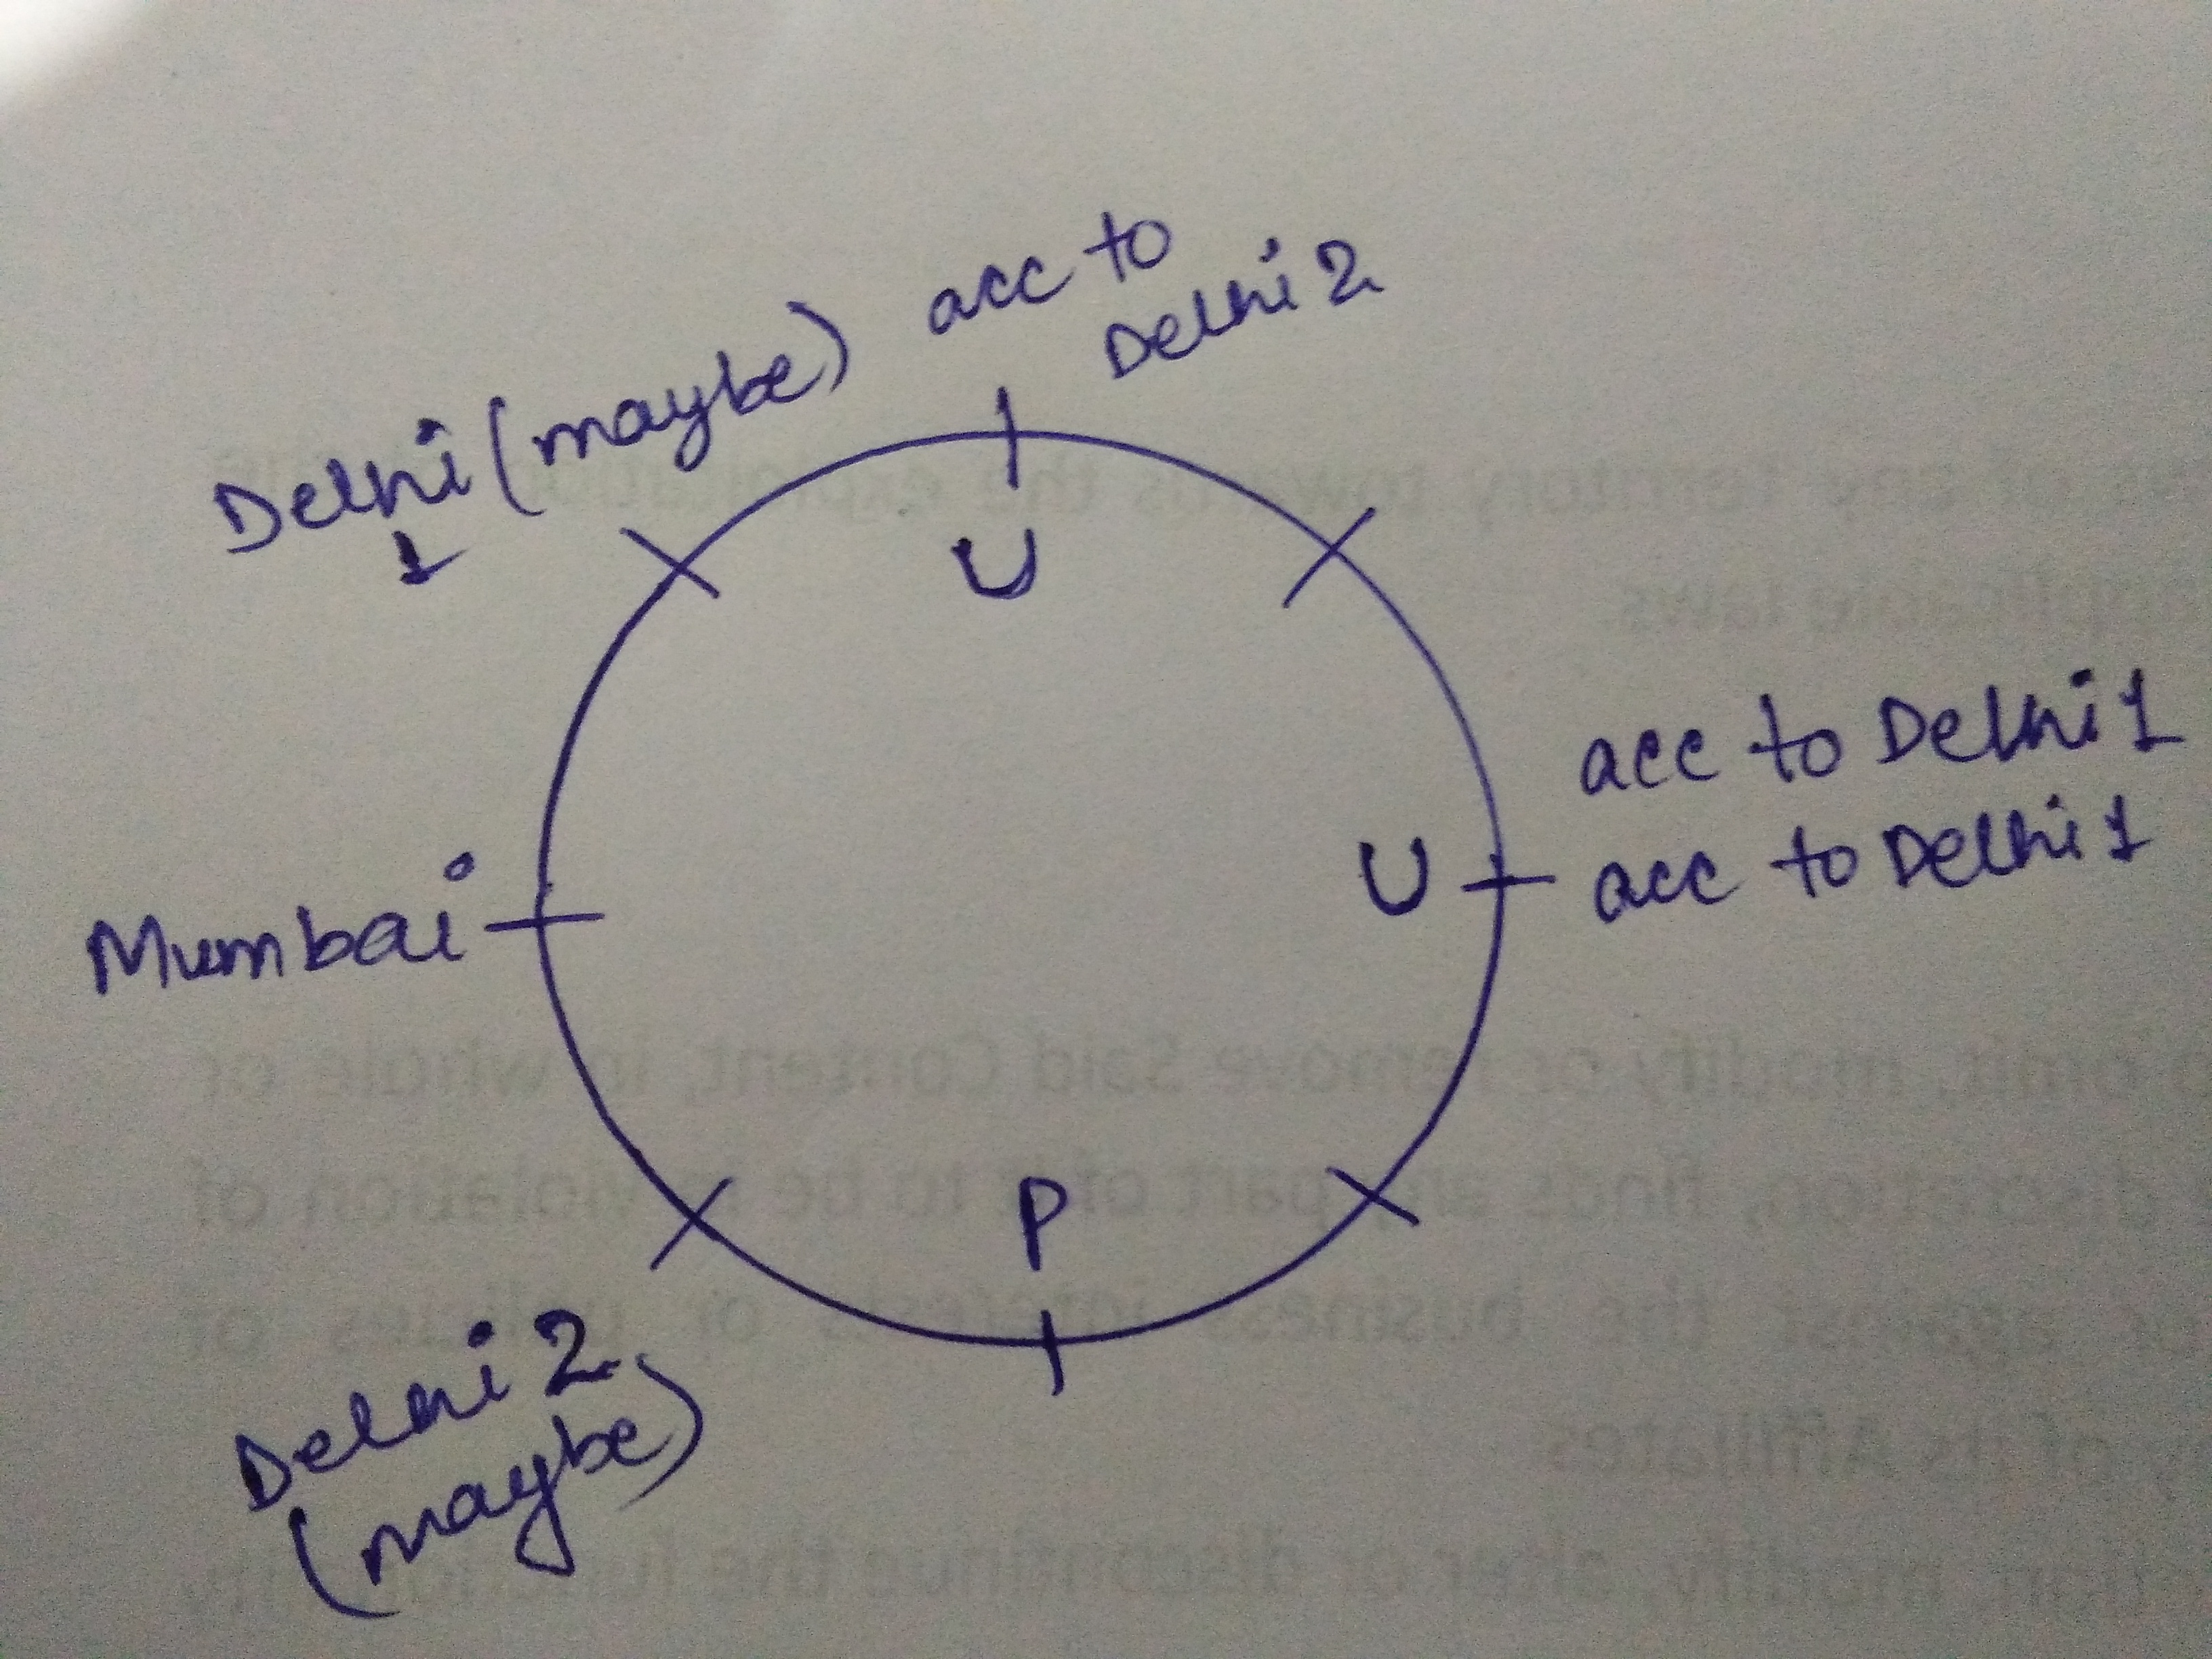 acc to
Delhi 2
Delhi (maybe)
1
U
acc to Delhi 1
U
acc to Delhi 1
Mumbai
P
Delhi 2
(maybe)